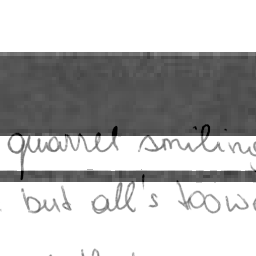 quarrel smiling
but all's toow